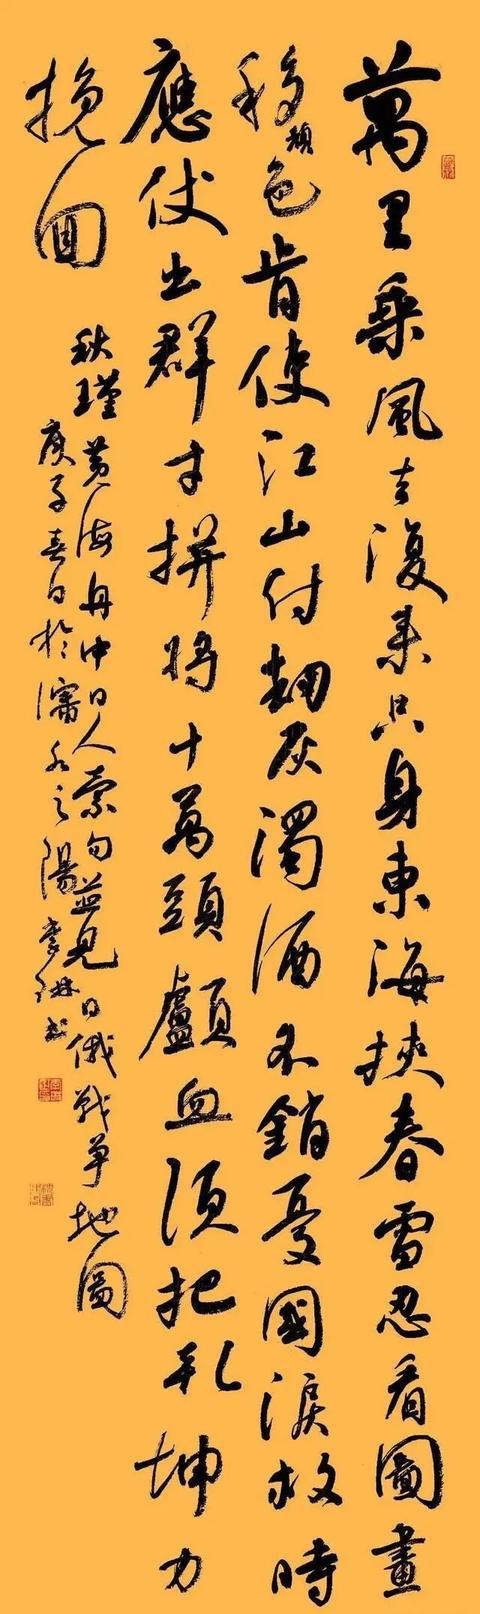 萬里乘風去復来只身東海挾春雷忍看圖畫
移顔色肯使江山付劫灰濁酒不銷憂國淚救時
應仗出群才拼將十萬頭顱血須把乾坤力
挽回
秋瑾黄海舟中日人索句並見日俄戰争地圖
庚子春日於濡水之陽李琳书